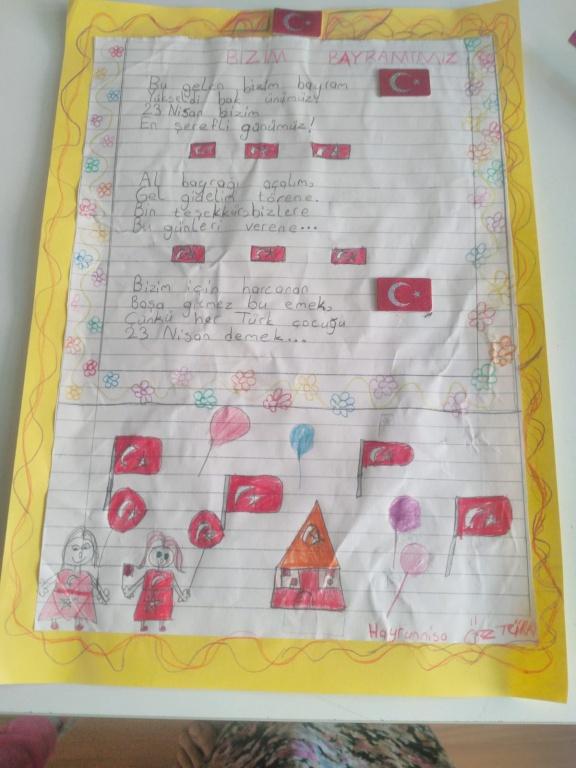 BİZİM BAYRAMIMIZ
Bu gelen bizim bayram
Yükseldi bak ünümüz!
23 Nisan bizim
En şerefli günümüz!
Al bayrağı açalım,
Gel gidelim törene.
Bin teşekkür bizlere
Bu günleri verene...
Bizim için harcanan
Boşa gitmez bu emek,
Çünkü her Türk çocuğu
23 Nisan demek...
Hayrunnisa